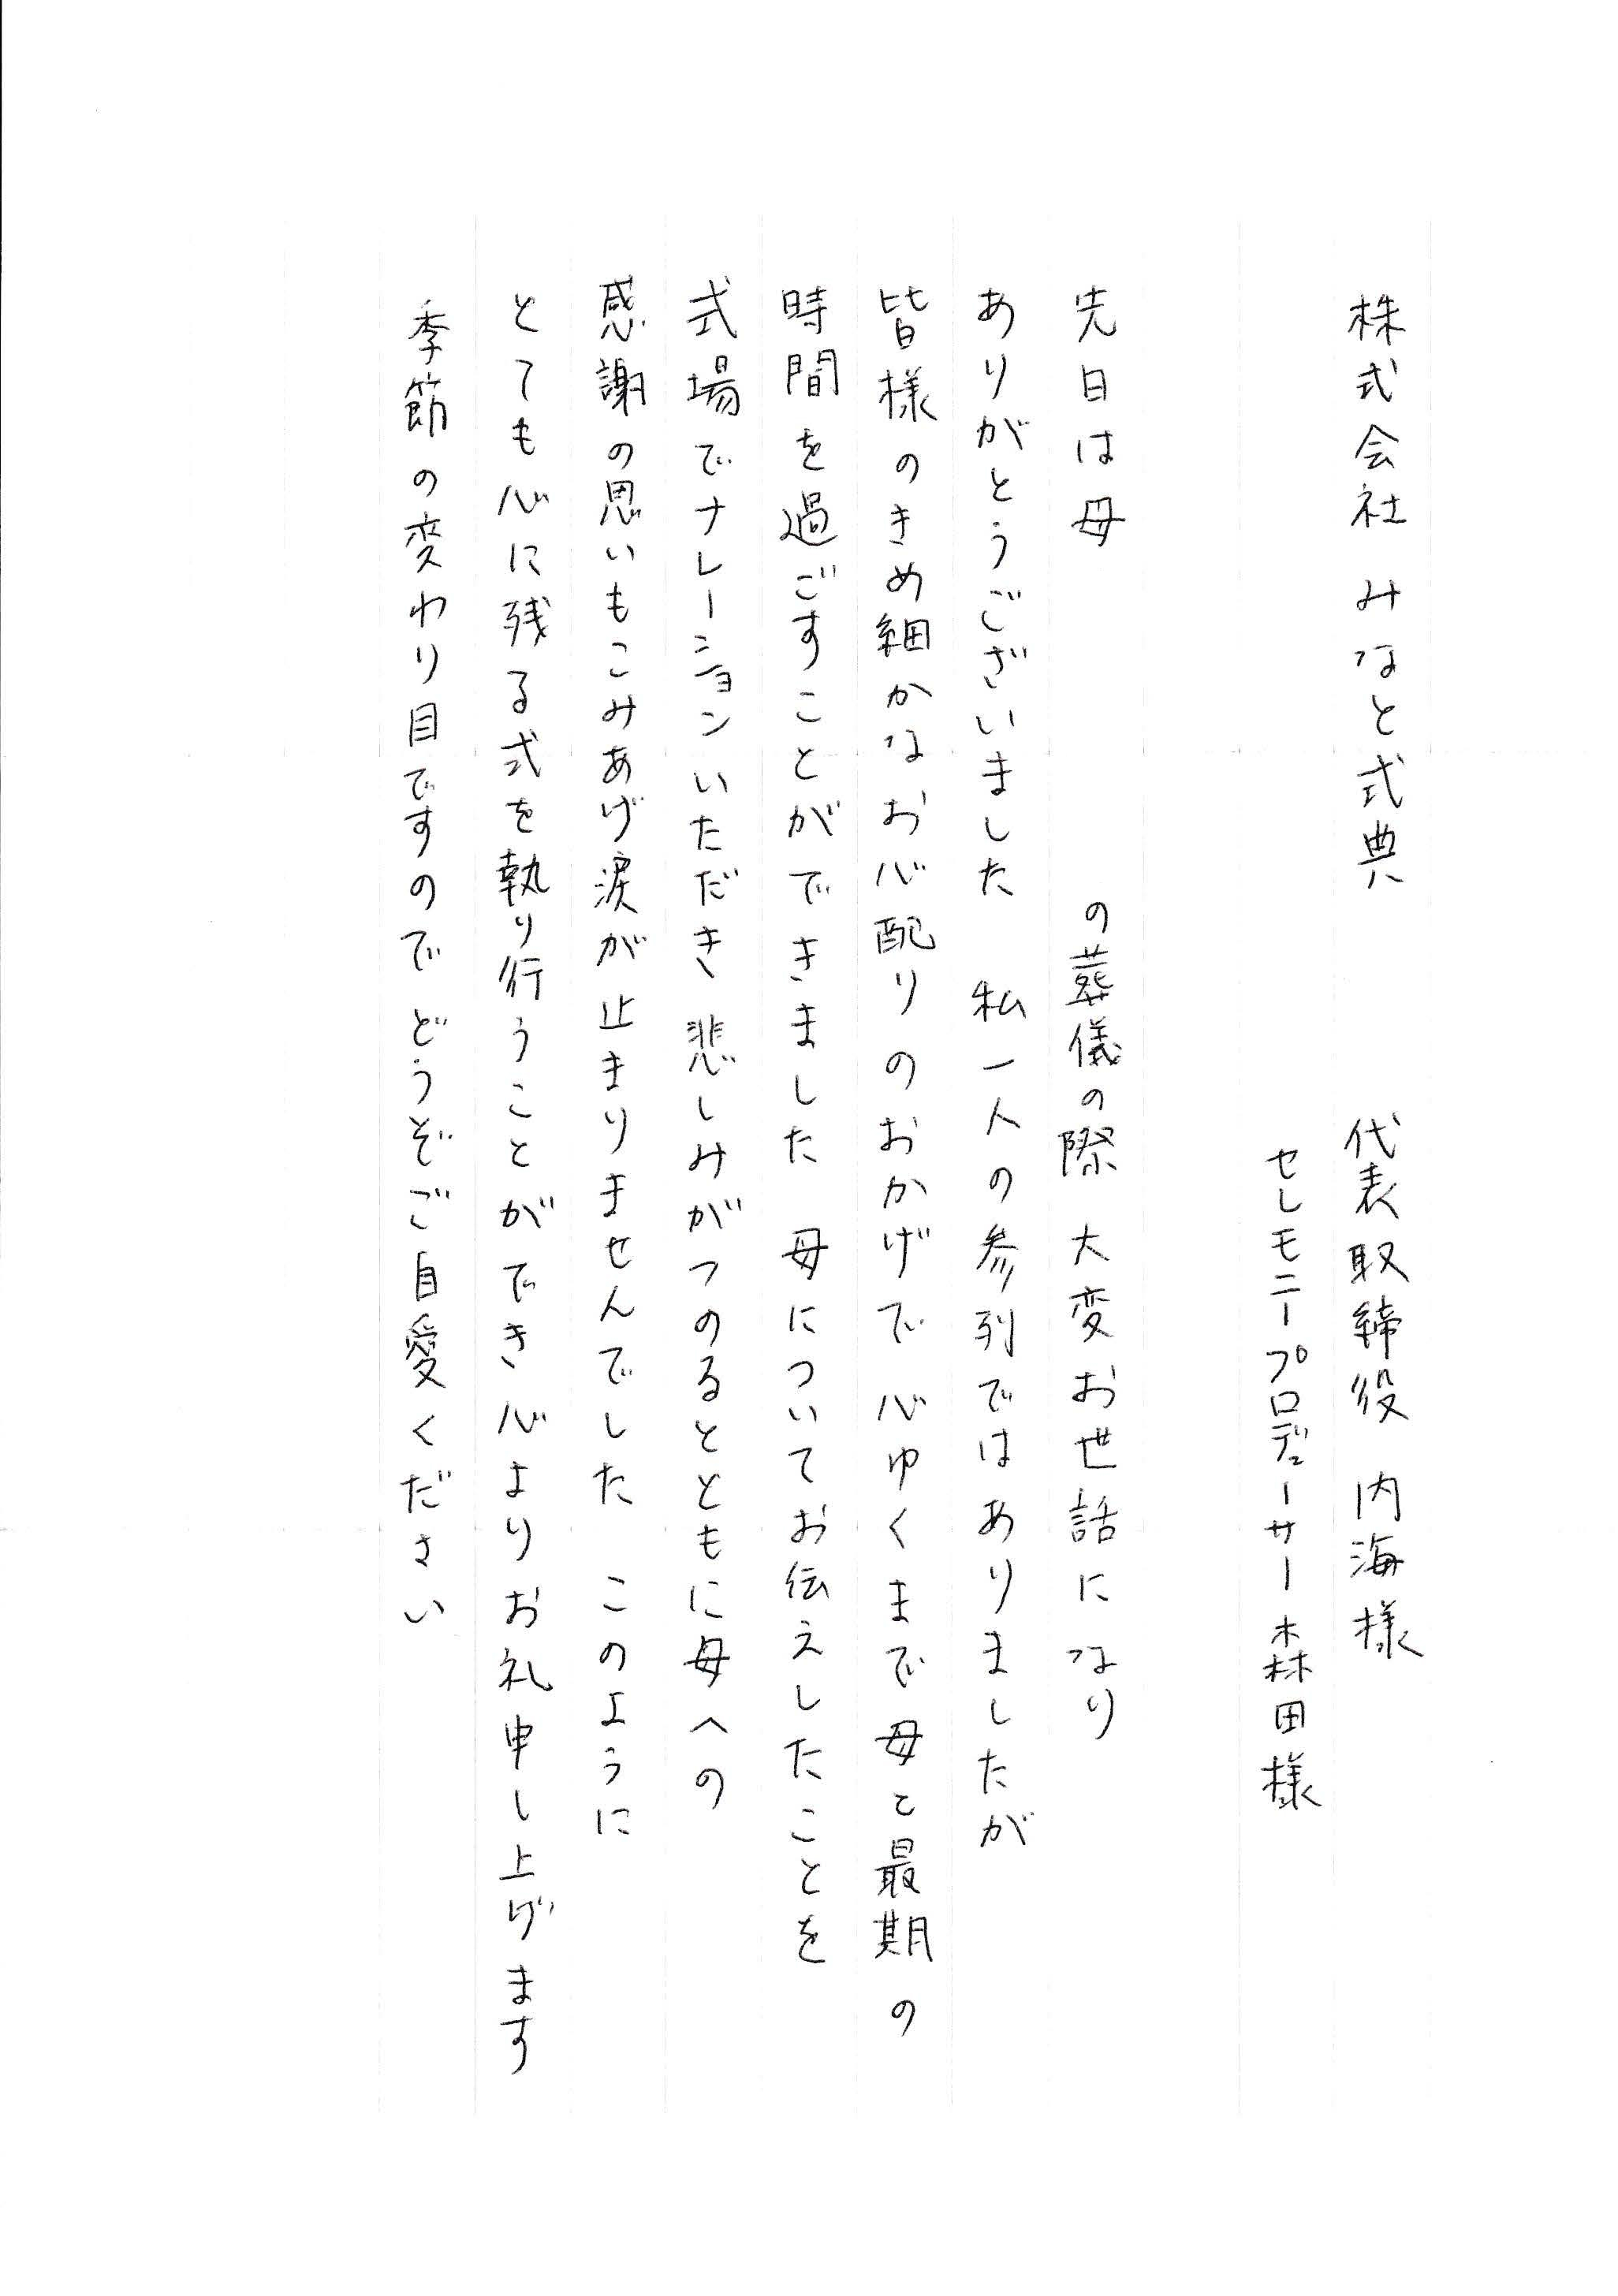 株式会社 みなと式典 代表取締役 内海様
セレモニープロデューサー 森田様
先日は母 の葬儀の際 大変お世話になり
ありがとうございました 私一人の参列ではありましたが
皆様のきめ細かなお心配りのおかげで 心ゆくまで母と最期の
時間を過ごすことができました 母についてお伝えしたことを
式場でナレーションいただき 悲しみがつのるとともに母への
感謝の思いもこみあげ涙が止まりませんでした このように
とても心に残る式を執り行うことができ心よりお礼申し上げます
季節の変わり目ですので どうぞご自愛ください